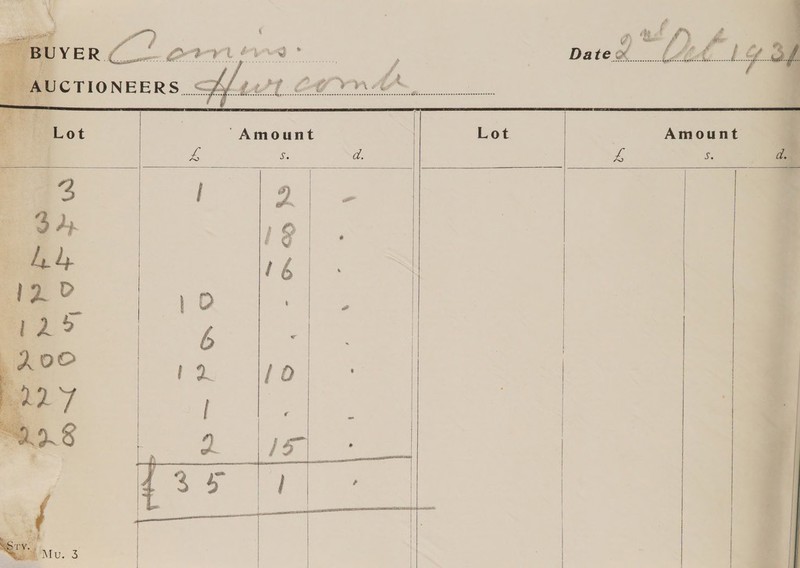 BUYER Comins. Date 2nd Oct 1931
AUCTIONEERS Hurcomb.
Lot Amount Lot Amount
£ s. d. £ s. d.
3 1 2 -
34 18 .
44 16 .
120 10 . -
125 6 - .
200 12 10 .
227 1 . -
228 2 15 .
£35 1 .
STY. MU. 3